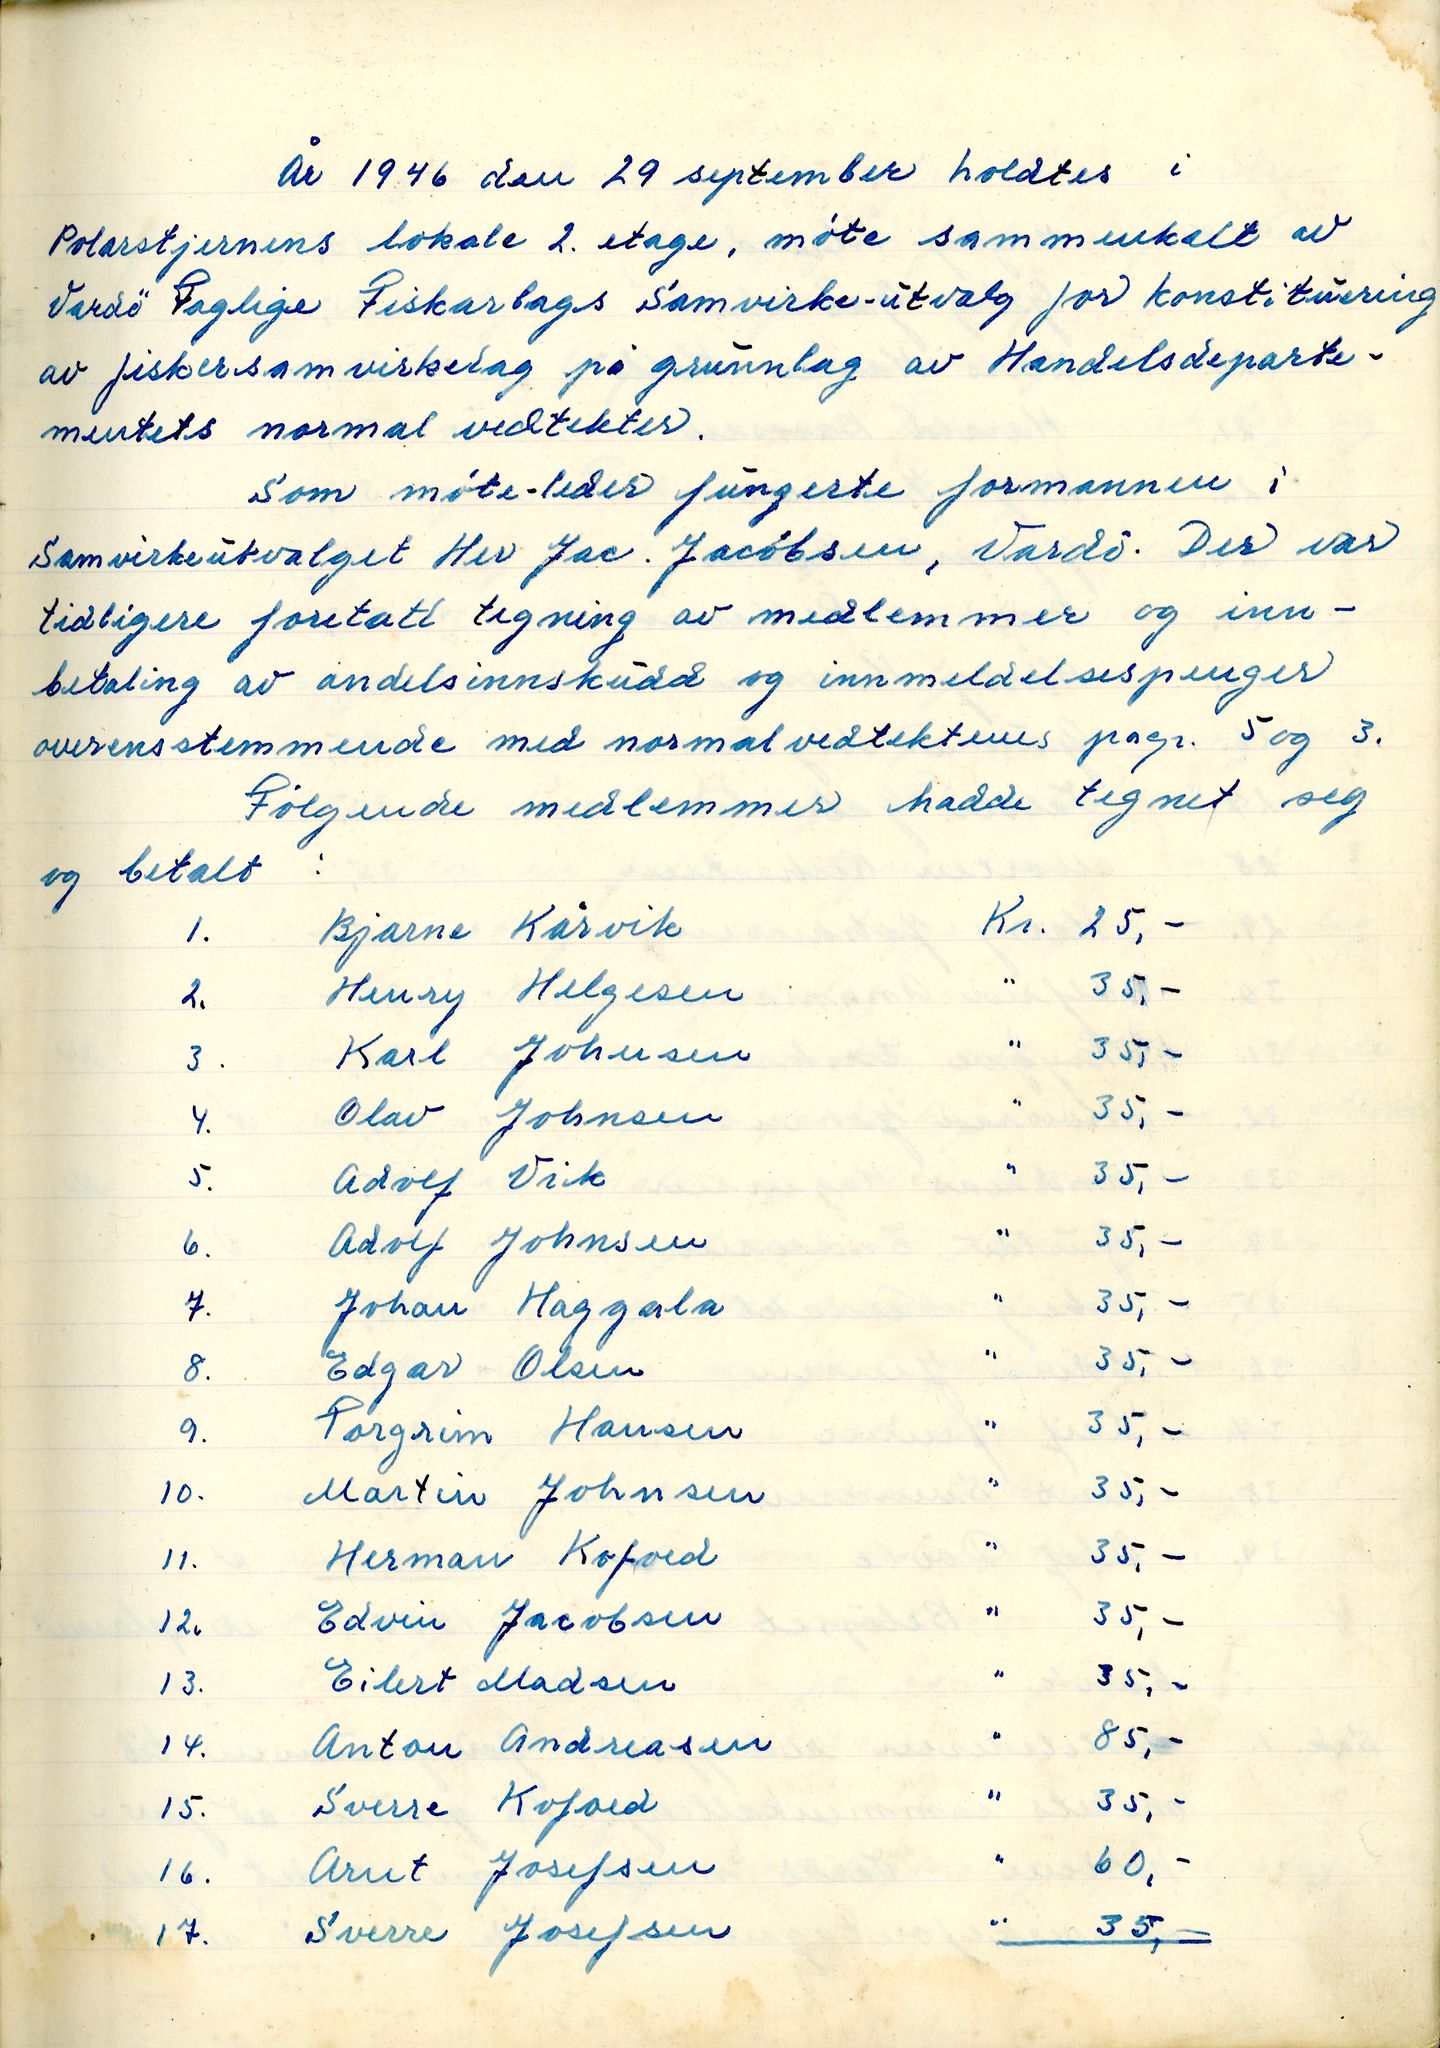 År 1946 den 29 september holdtes i
Polarstjernens lokale 2. etage, móte sammenkalt av
Vardö Faglige Fiskarlags Samvirke-utvalg for konstituering
av fiskersamvirkelag på grunnlag av Handelsdeparte-
mentets normal vedtekter.
Som móte-leder fungerte formannen i
Samvirkeutvalget Her Jac. Jacobsen, Vardö. Der var
tidligere foretatt tegning av medlemmer og inn-
betaling av andelsinnskudd og innmeldelsespenger
overensstemmende med normalvedtektenes pagr. 5 og 3.
Fölgende medlemmer hadde tegnet seg
og betalt :
1. Bjarne Kårvik Kr. 25,-
2. Henry Helgesen " 35,-
3. Karl Johnsen " 35,-
4. Olav Johnsen " 35,-
5. Adolf Vik " 35,-
6. Adolf Johnsen " 35,-
7. Johan Haggala " 35,-
8. Edgar Olsen " 35,-
9. Torgrim Hansen " 35,-
10. Martin Johnsen " 35,-
11. Herman Kofoed " 35,-
12. Edvin Jacobsen " 35,-
13. Eilert Madsen " 35,-
14. Anton Andreasen " 85,-
15. Sverre Kofoed " 35,-
16. Arnt Josefsen " 60,-
17. Sverre Josefsen " 35,-